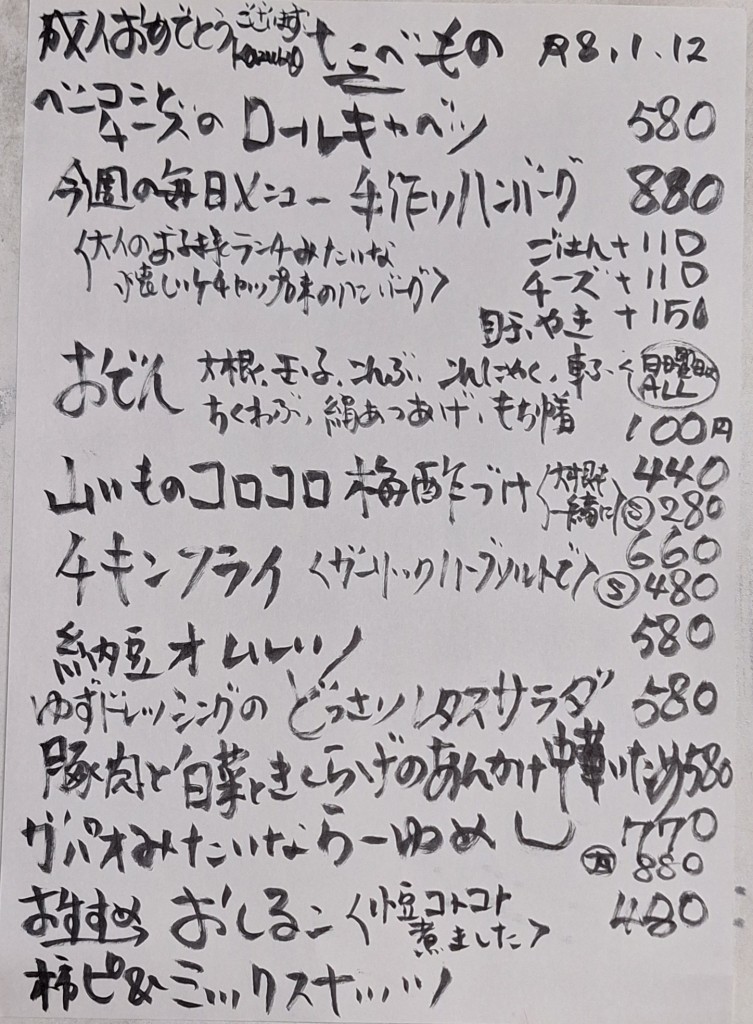 成人おめでとうございます たこべもの R8.1.12
ベーコンとチーズのロールキャベツ 580
今週の毎日メニュー 手作りハンバーグ 880
〈大人のお子様ランチみたいな ごはん+110
懐しいケチャップ味のハンバーグ〉 チーズ+110
目玉やき +150
おでん 大根、玉子、こんぶ、こんにゃく、車ふ 〈日曜日はALL
ちくわぶ、絹あつあげ、もち巾着 100円
山いものコロコロ梅酢づけ〈大根も一緒に〉 440 Ⓢ280
チキンフライ〈ガーリックハーブソルトで〉 660 Ⓢ480
納豆オムレツ 580
ゆずドレッシングのどっさりレタスサラダ 580
豚肉と白菜ときくらげのあんかけ中華いため 580
ガパオみたいならーゆめし 770 大880
おすすめ おしるこ〈小豆コトコト煮ました〉 480
柿ピ&ミックスナッツ